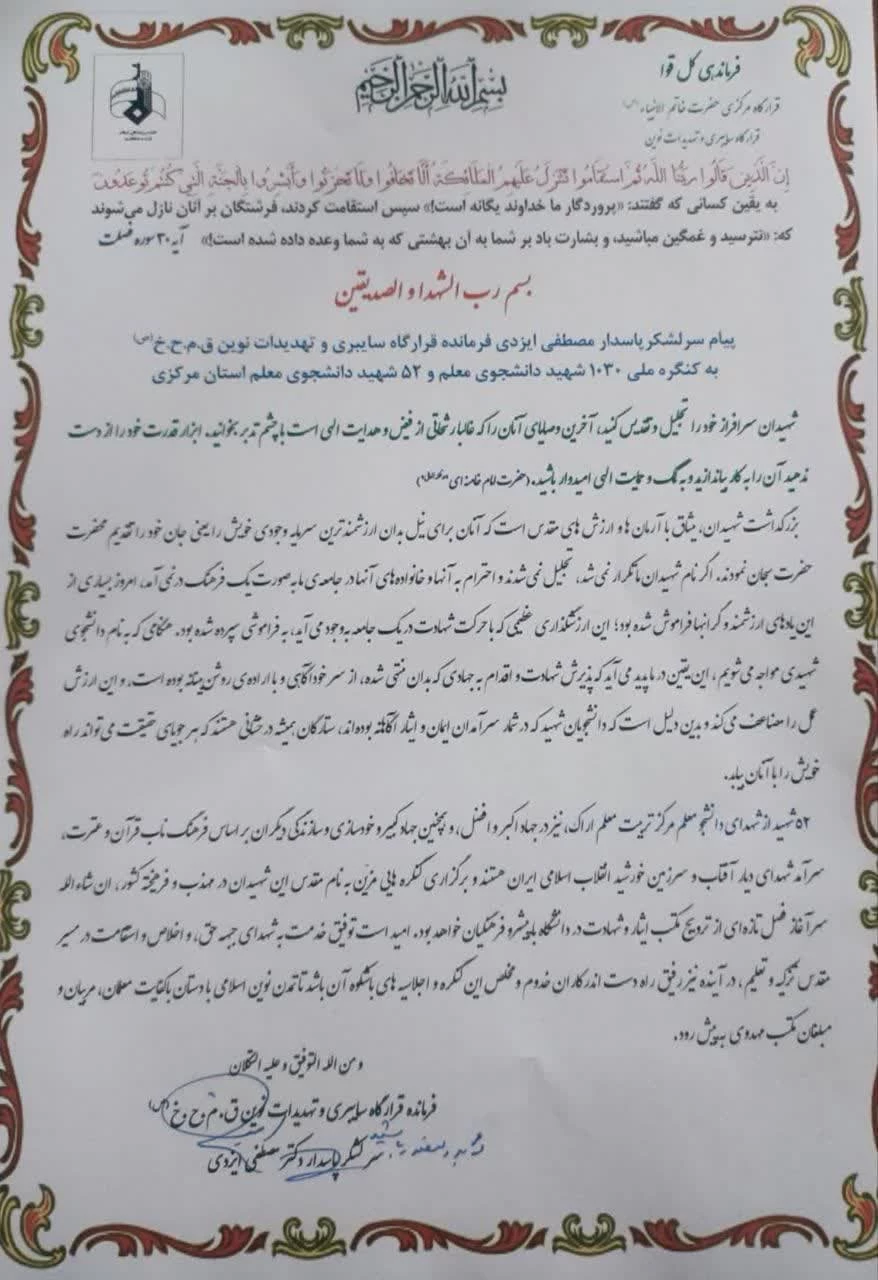 فرماندهی کل قوا
بسم الله الرحمن الرحیم
قرارگاه مرکزی حضرت خاتم الانبیاء (ص)
قرارگاه سایبری و تهدیدات نوین
إِنَّ الَّذِينَ قَالُوا رَبُّنَا اللَّهُ ثُمَّ اسْتَقَامُوا تَتَنَزَّلُ عَلَيْهِمُ الْمَلَائِكَةُ أَلَّا تَخَافُوا وَلَا تَحْزَنُوا وَأَبْشِرُوا بِالْجَنَّةِ الَّتِي كُنْتُمْ تُوعَدُونَ
به یقین کسانی که گفتند: «پروردگار ما خداوند یگانه است!» سپس استقامت کردند، فرشتگان بر آنان نازل می‌شوند
که: «نترسید و غمگین مباشید، و بشارت باد بر شما به آن بهشتی که به شما وعده داده شده است!» آیه ۳۰ سوره فصلت
بسم رب الشهدا و الصدیقین
پیام سرلشکر پاسدار مصطفی ایزدی فرمانده قرارگاه سایبری و تهدیدات نوین ق.م.ح.خ (ص)
به کنگره ملی ۱۰۳۰ شهید دانشجوی معلم و ۵۲ شهید دانشجوی معلم استان مرکزی
شهیدان سرافراز خود را تجلیل و تقدیس کنید، آخرین وصایای آنان را که غالبا رشحاتی از فیض و هدایت الهی است با چشم تدبر بخوانید. ابزار قدرت خود را از دست
ندهید آن را به کار بیاندازید و به کمک و حمایت الهی امیدوار باشید. (حضرت امام خامنه ای
بزرگداشت شهیدان، میثاق با آرمان ها و ارزش های مقدس است که آنان برای نیل بدان ارزشمندترین سرمایه وجودی خویش را یعنی جان خود را تقدیم محضرت
حضرت سبحان نمودند. اگر نام شهیدان ما تکرار نمی شد، تجلیل نمی شدند و احترام به آنها و خانواده های آنها در جامعه ی ما به صورت یک فرهنگ در نمی آمد، امروز بسیاری از
این یادهای ارزشمند و گرانبها فراموش شده بود؛ این ارزشگذاری عظیمی که با حرکت شهادت در یک جامعه به وجود می آید، به فراموشی سپرده شده بود. هنگامی که به نام دانشجوی
شهیدی مواجه می شویم، این یقین در ما پدید می آید که پذیرش شهادت و اقدام به جهادی که بدان منتهی شده، از سر خودآگاهی و با اراده ی روشن بینانه بوده است، و این ارزش
عمل را مضاعف می کند و بدین دلیل است که دانشجویان شهید که در شمار سرآمدان ایمان و ایثار آگاهانه بوده‌اند، ستارگان همیشه درخشانی هستند که هر جویای حقیقت می تواند راه
خویش را با آنان بیابد.
۵۲ شهید از شهدای دانشجو معلم مرکز تربیت معلم اراک، نیز در جهاد اکبر و افضل، و همچنین جهاد کبیر و خودسازی و سازندگی دیگران بر اساس فرهنگ ناب قرآن و عترت،
سرآمد شهدای دیار آفتاب و سرزمین خورشید انقلاب اسلامی ایران هستند و برگزاری کنگره هایی مزیّن به نام مقدس این شهیدان در مهذب و فرهیخته کشور، ان شاء الله
سرآغاز فصل تازه‌ای از ترویج مکتب ایثار و شهادت در دانشگاه پیشرو فرهنگیان خواهد بود. امید است توفیق خدمت به شهدای جبهه حق، و اخلاص و استقامت در مسیر
مقدس تزکیه و تعلیم، در آینده نیز رفیق راه دست اندرکاران خدوم و مخلص این کنگره و اجلاسیه های باشکوه آن باشد تا تمدن نوین اسلامی با دستان با کفایت معلمان، مربیان و
مبلغان مکتب مهدوی به پیش رود.
و من الله التوفیق و علیه التکلان
فرمانده قرارگاه سایبری و تهدیدات نوین ق. م ح خ (ص)
سرلشکر پاسدار دکتر مصطفی ایزدی